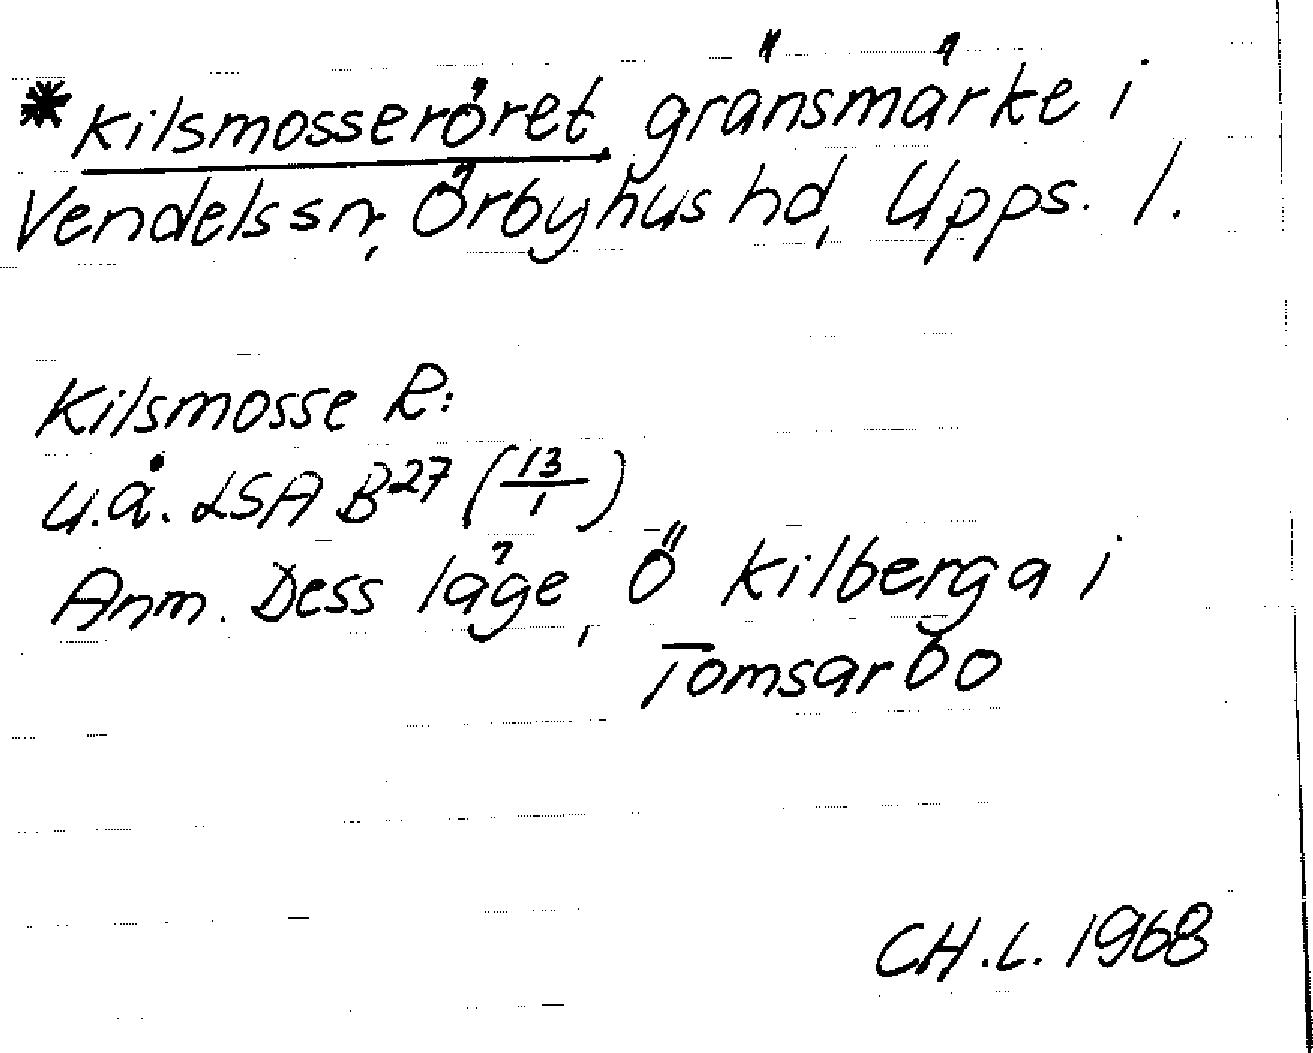 *Kilsmosseröret, gränsmärke i
Vendels sn, Örbyhus hd, Upps. l.
Kilsmosse R:
u.å. LSA B27 (13/1)
Anm. Dess läge, Ö Kilberga i
Tomsarbo
CH.L. 1968